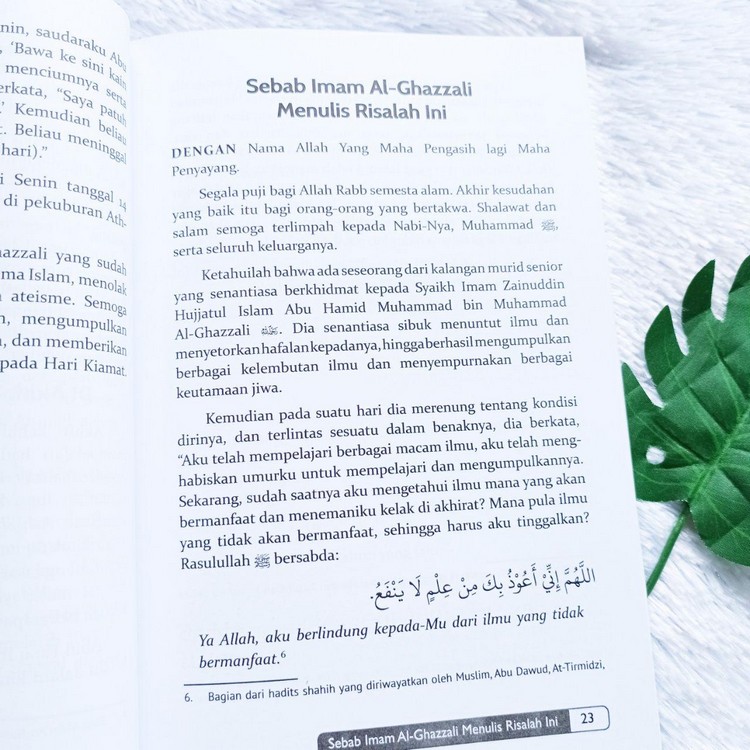 nin, saudaraku Abu
, 'Bawa ke sini kain
menciumnya serta
erkata, “Saya patuh
.' Kemudian beliau
t. Beliau meninggal
hari).”
i Senin tanggal 14
di pekuburan Ath-
azzali yang sudah
ma Islam, menolak
ateisme. Semoga
n, mengumpulkan
, dan memberikan
pada Hari Kiamat.
Sebab Imam Al-Ghazzali
Menulis Risalah Ini
DENGAN Nama Allah Yang Maha Pengasih lagi Maha
Penyayang.
Segala puji bagi Allah Rabb semesta alam. Akhir kesudahan
yang baik itu bagi orang-orang yang bertakwa. Shalawat dan
salam semoga terlimpah kepada Nabi-Nya, Muhammad ﷺ,
serta seluruh keluarganya.
Ketahuilah bahwa ada seseorang dari kalangan murid senior
yang senantiasa berkhidmat kepada Syaikh Imam Zainuddin
Hujjatul Islam Abu Hamid Muhammad bin Muhammad
Al-Ghazzali. Dia senantiasa sibuk menuntut ilmu dan
menyetorkan hafalan kepadanya, hingga berhasil mengumpulkan
berbagai kelembutan ilmu dan menyempurnakan berbagai
keutamaan jiwa.
Kemudian pada suatu hari dia merenung tentang kondisi
dirinya, dan terlintas sesuatu dalam benaknya, dia berkata,
“Aku telah mempelajari berbagai macam ilmu, aku telah meng-
habiskan umurku untuk mempelajari dan mengumpulkannya.
Sekarang, sudah saatnya aku mengetahui ilmu mana yang akan
bermanfaat dan menemaniku kelak di akhirat? Mana pula ilmu
yang tidak akan bermanfaat, sehingga harus aku tinggalkan?
Rasulullah ﷺ bersabda:
اللَّهُمَّ إِنِّيْ أَعُوْذُ بِكَ مِنْ عِلْمٍ لَا يَنْفَعُ.
Ya Allah, aku berlindung kepada-Mu dari ilmu yang tidak
bermanfaat.⁶
6. Bagian dari hadits shahih yang diriwayatkan oleh Muslim, Abu Dawud, At-Tirmidzi,
Sebab Imam Al-Ghazzali Menulis Risalah Ini 23